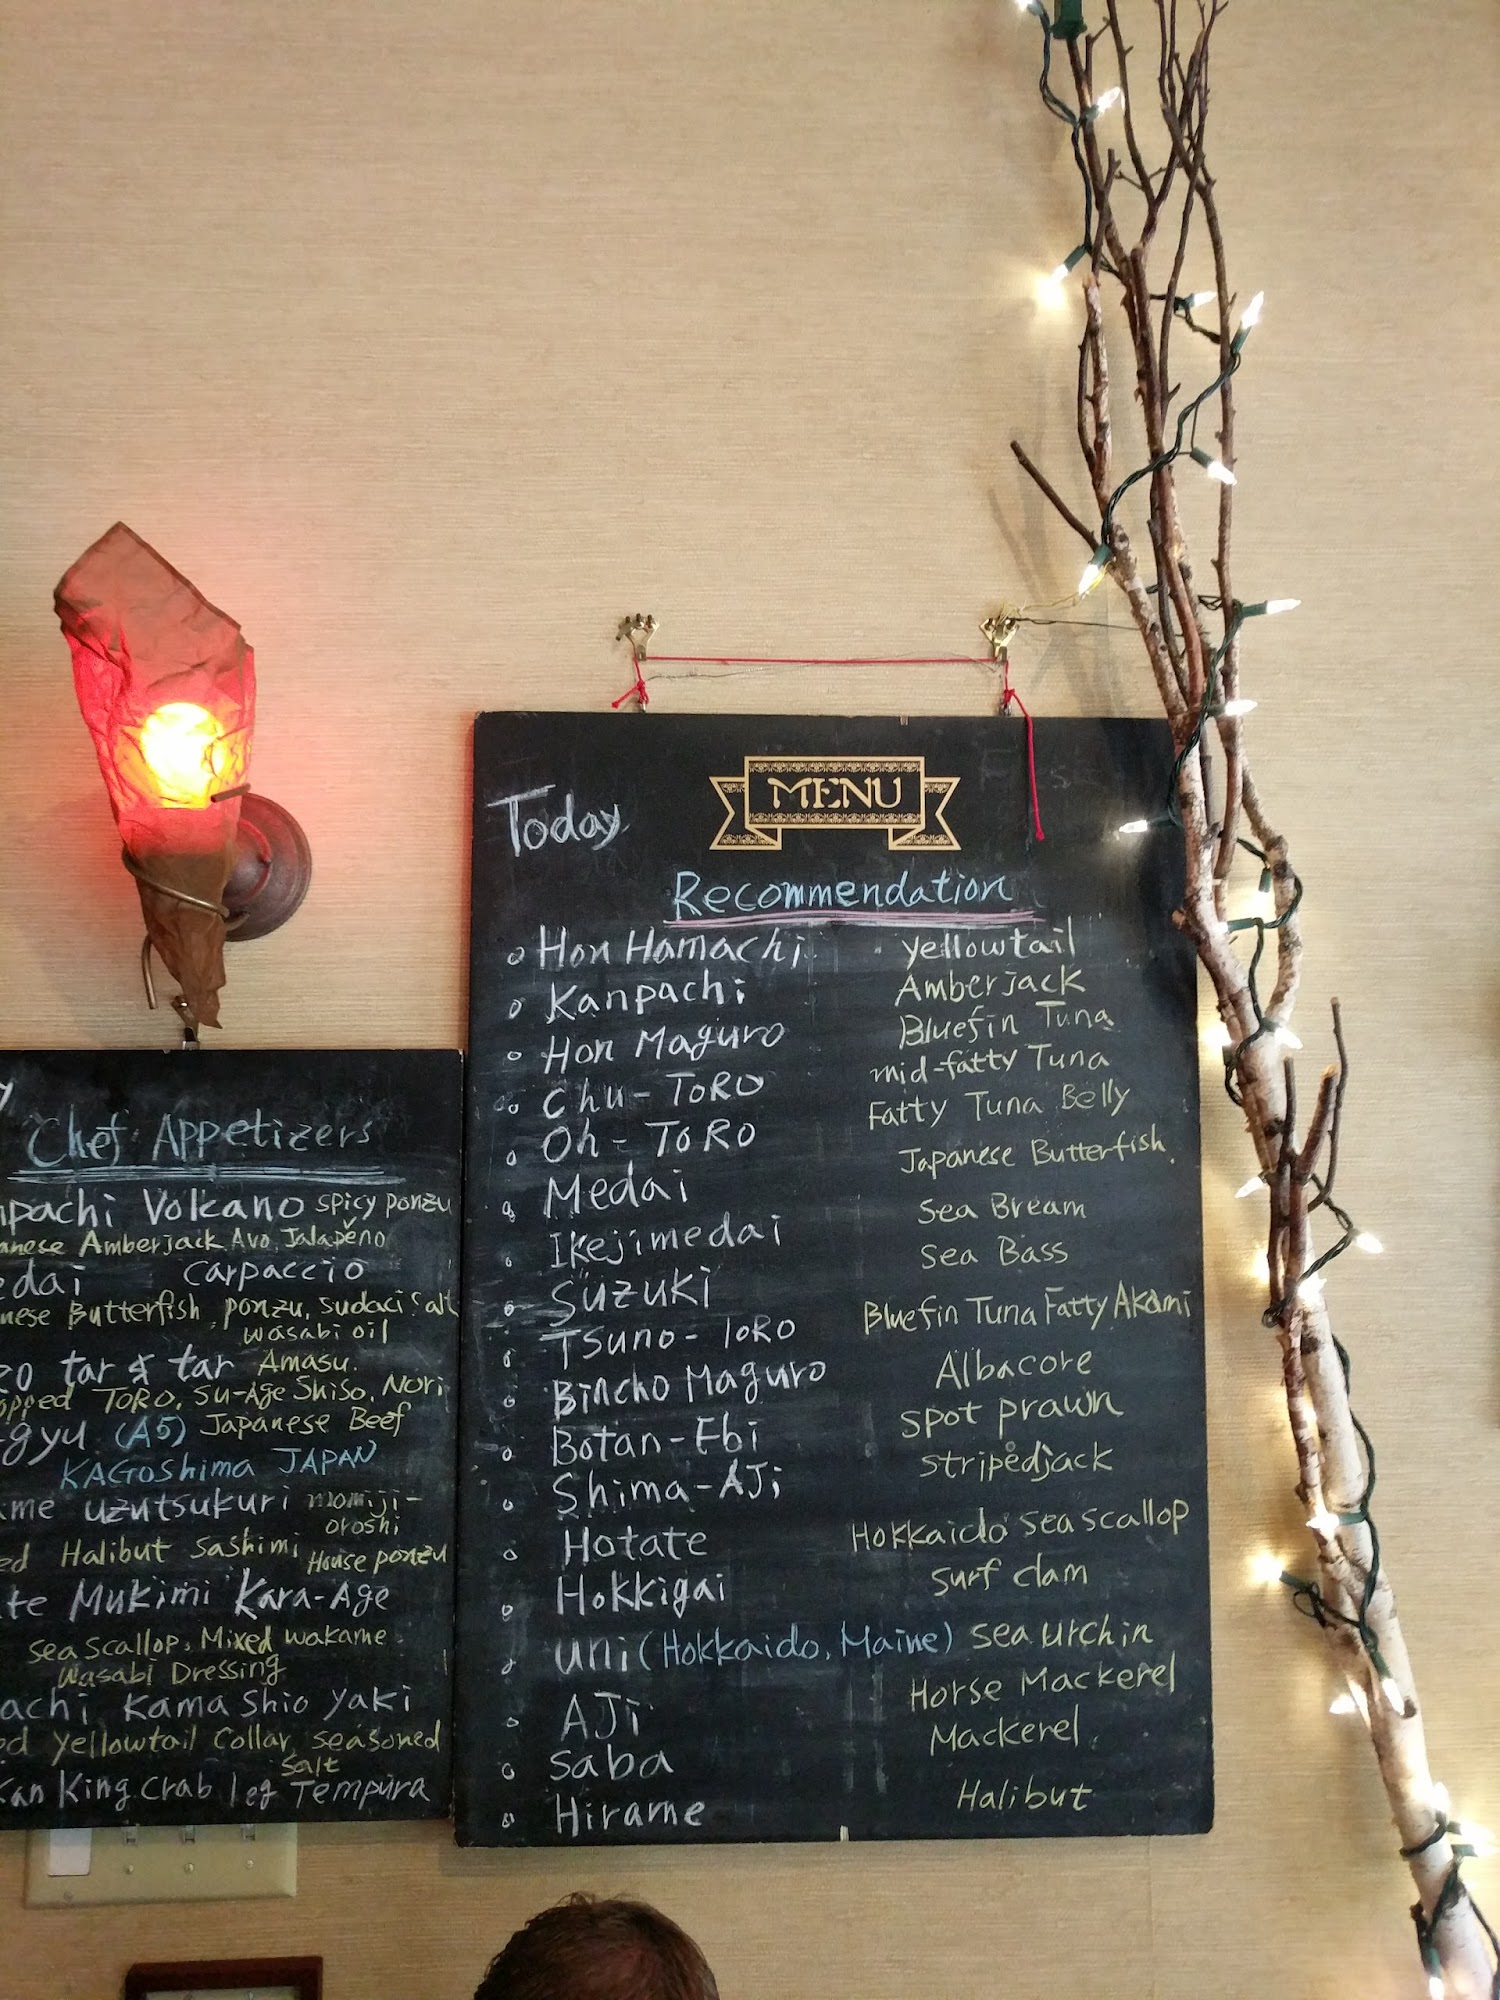 MENU
Today
Recommendation
Hon Hamachi yellowtail
Kanpachi Amberjack
Hon Maguro Bluefin Tuna
Chu-ToRO mid-fatty Tuna
Oh-ToRO Fatty Tuna Belly
Medai Japanese Butterfish.
Ikejimedai Sea Bream
Suzuki Sea Bass
Tsuno-ToRO Bluefin Tuna Fatty Akami
Bincho Maguro Albacore
Botan-Ebi spot prawn
Shima-AJi stripedjack
Hotate Hokkaido sea scallop
Hokkigai surf clam
uni (Hokkaido, Maine) sea urchin
AJi Horse Mackerel
saba Mackerel
Hirame Halibut
y
Chef Appetizers
npachi Volkano spicy ponzu
anese Amberjack Avo, Jalapeño
edai carpaccio
nese Butterfish, ponzu, sudaci salt
wasabi oil
zo tar & tar Amasu.
opped TORO, Su-Age Shiso, Nori
-gyu (A5) Japanese Beef
KAGOshima JAPAN
ame uzutsukuri momiji-
oroshi
ed Halibut sashimi House ponzu
te Mukimi Kara-Age
sea scallop, Mixed wakame
Wasabi Dressing
achi Kama Shio yaki
ed yellowtail Collar, seasoned
salt
kan King crab leg Tempura